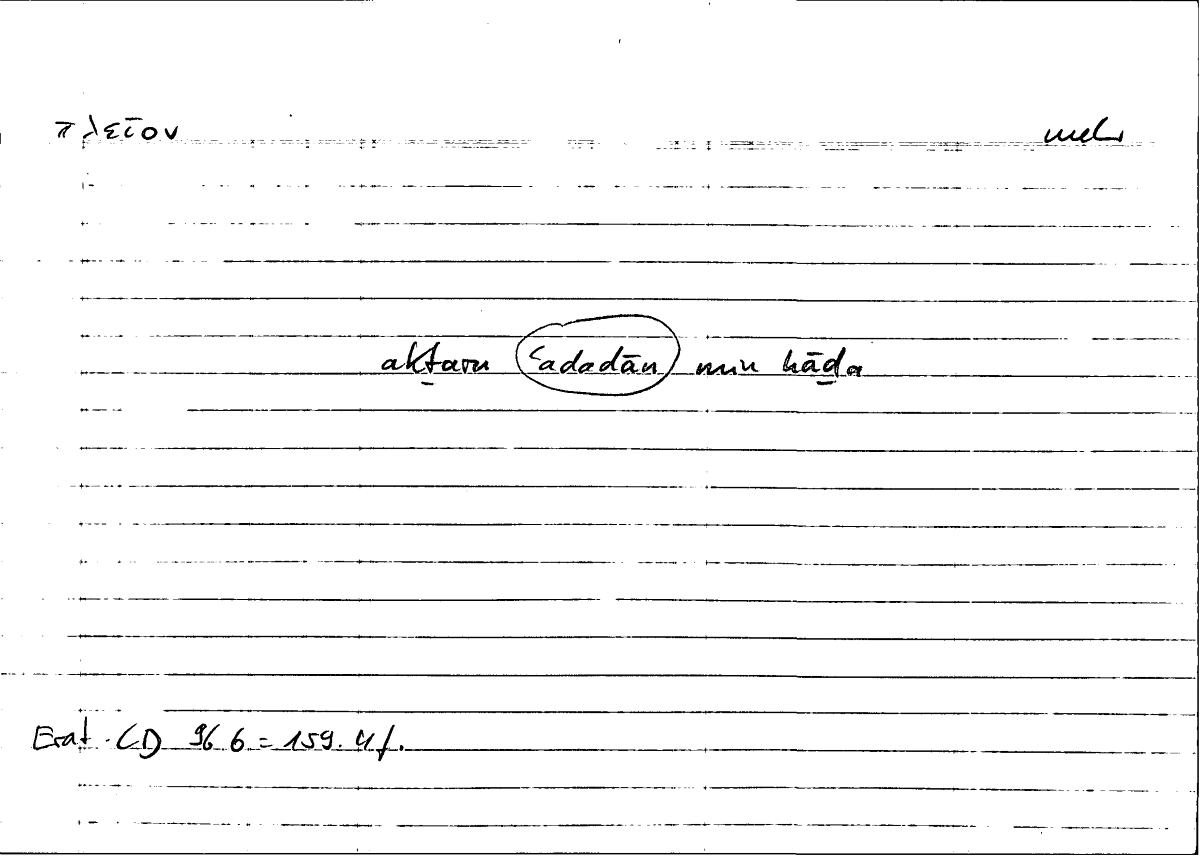 πλεῖον mehr
akṯaru ʿadadān min hāḏa
Erat. CD 96 6 = 159. 4 f.